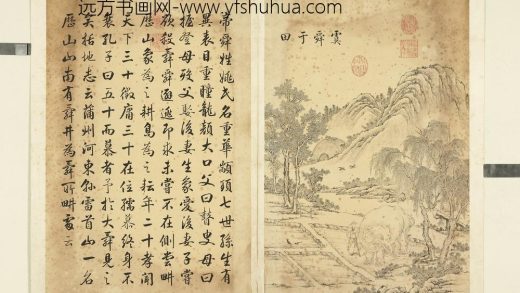 远方书画网:www.yfshuhua.com
虞舜于田
帝舜姓姚氏名重華顓頊七世孫生有
異表目重瞳龍顔大口父曰瞽叟母曰
握登母歿父娶後妻生象愛後妻子嘗
欲殺舜舜遜避即求未嘗不在側嘗畊
厯山象為之耕鳥為之耘年二十孝聞
天下三十徵庸三十在位孺慕終身不
衰孔子曰五十而慕者予於大舜見之
矣括地志云蒲州河東縣雷首山一名
厯山山南有舜井為舜所畊處云